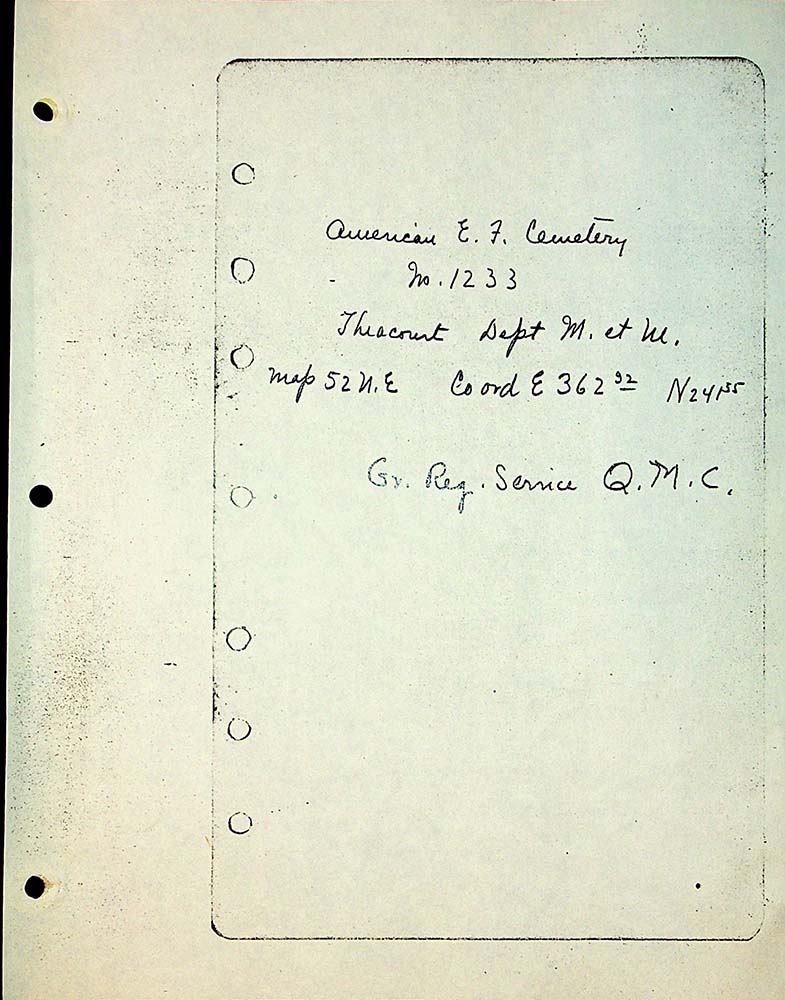 American E. F. Cemetery
No. 1233
Thiacourt Dept M. et M.
Map 52 N.E Coord E 362 92 N 241 55
Gr. Reg. Service Q.M.C.